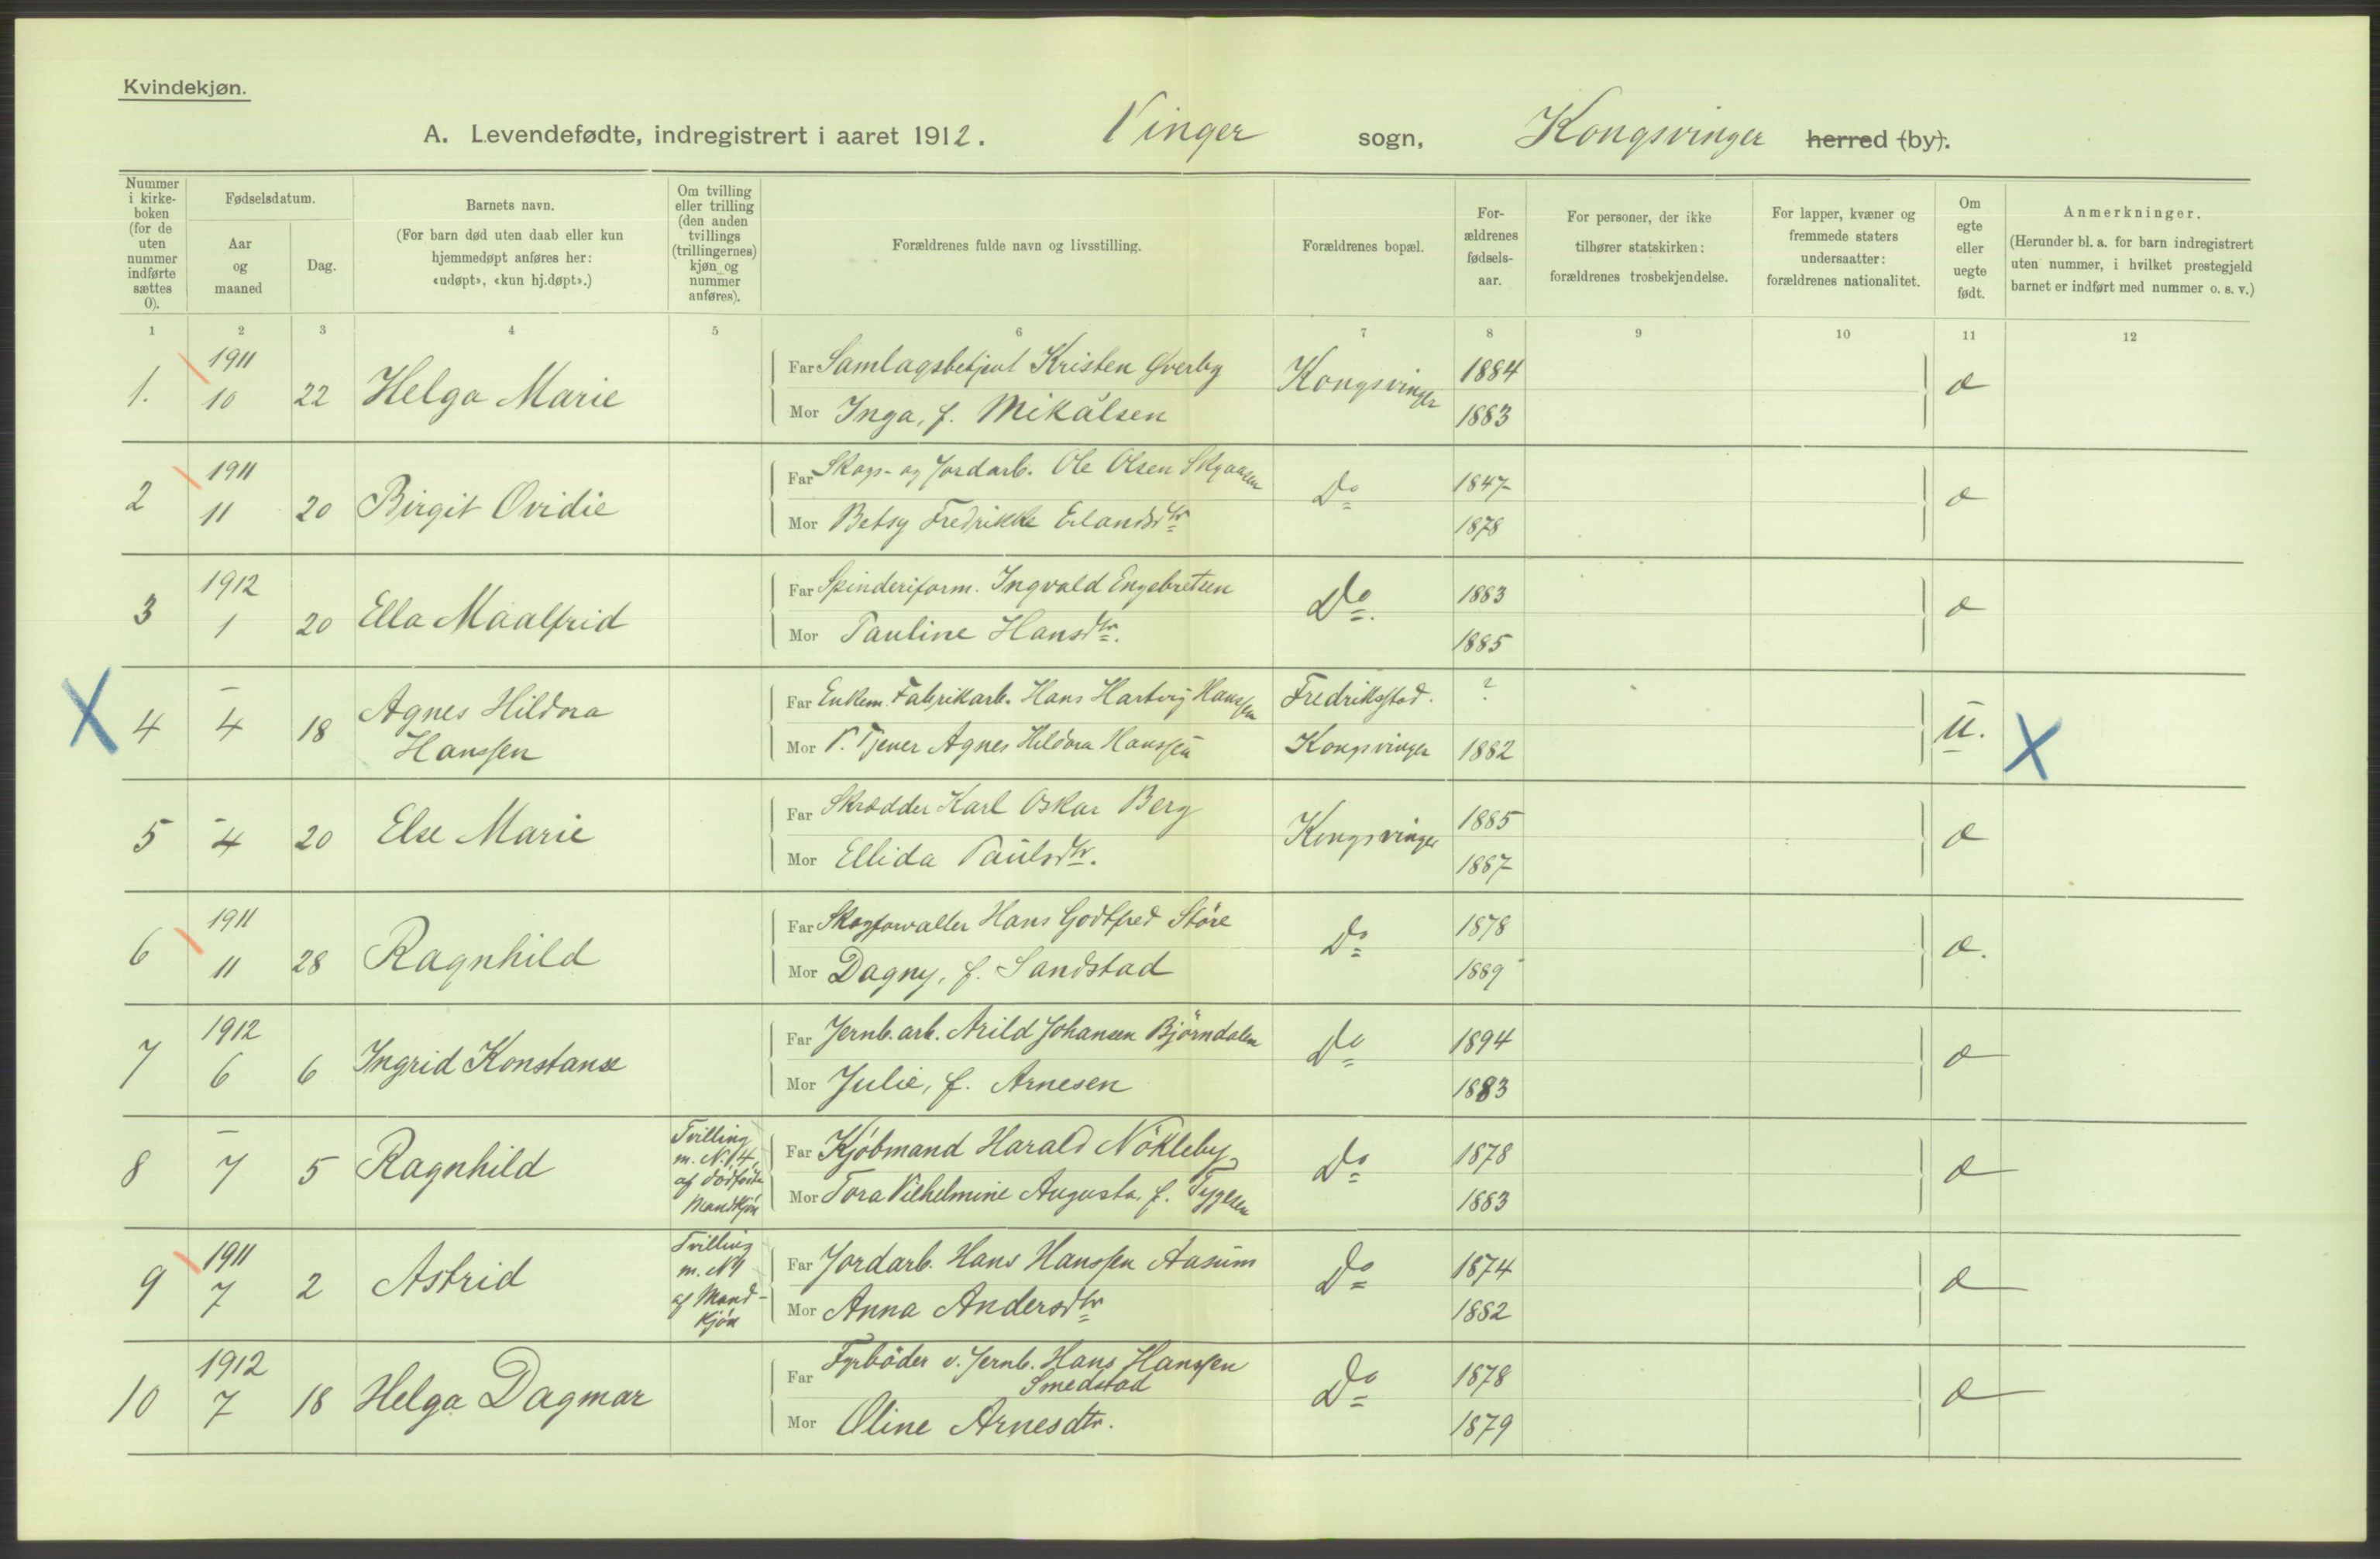 Kvindekjøn.
A. Levendefødte, indregistrert i aaret 1912. Vinger sogn, Kongsvinger herred (by).
Nummer i kirke-boken (for de uten nummer indførte sættes 0).
Fødselsdatum.
Aar og maaned
Dag.
Barnets navn.
(For barn død uten daab eller kun hjemmedøpt anføres her: «udøpt», «kun hj.døpt».)
Om tvilling eller trilling (den anden tvillings (trillingernes) kjøn og nummer anføres).
Forældrenes fulde navn og livsstilling.
Forældrenes bopæl.
For-ældrenes fødsels-aar.
For personer, der ikke tilhører statskirken: forældrenes trosbekjendelse.
For lapper, kvæner og fremmede staters undersaatter: forældrenes nationalitet.
Om egte eller uegte født.
Anmerkninger.
(Herunder bl. a. for barn indregistrert uten nummer, i hvilket prestegjeld barnet er indført med nummer o. s. v.)
1 2 3 4 5 6 7 8 9 10 11 12
1. 1911 10 22 Helga Marie
Far Samlagsbetjent Kristen Øverby Kongsvinger 1884
Mor Inga, f. Mikálsen 1883
2 1911 11 20 Birgit Ovidie
Far Skogs- og Jordarb. Ole Olsen Do 1847
Mor Betsy Fredrikke Erlandsdtr 1878
3 1912 1 20 Ella Maalfrid
Far Spinderiform. Ingvald Engebretsen Do. 1883
Mor Pauline Hansdtr. 1885
X 4 – 4 18 Agnes Hildora Hanssen
Far Enkem. Fabrikarb. Hans Hartvig Hanssen Fredriksstad. ?
Mor P. Tjener Agnes Hildora Hanssen Kongsvinger 1882 u. X
5 - 4 20 Else Marie
Far Skrædder Karl Oskar Berg Kongsvinger 1885
Mor Ellida Paulsdtr. 1887
6 1911 11 28 Ragnhild
Far Skogforvalter Hans Godtfred Störe Do 1878
Mor Dagny, f. Sandstad 1889
7 1912 6 6 Ingrid Konstanse
Far Jernb. arb. Arild Johansen Björndalen Do 1894
Mor Julie, f. Arnesen 1883
8 – 7 5 Ragnhild Tvilling m. N. 14 af dødfødte Mandkjøn
Far Kjöbmand Harald Nökleby Do 1878
Mor Tora Vilhelmine Augusta, f. Tygesen 1883
9 1911 7 2 Astrid Tvilling m. N af Mand-kjøn
Far Jordarb. Hans Hanssen Aasum Do 1874
Mor Anna Andersdtr 1882
10 1912 7 18 Helga Dagmar
Far Fyrböder v. Jernb. Hans Hanssen Smedstad Do 1878
Mor Oline Arnesdtr. 1879